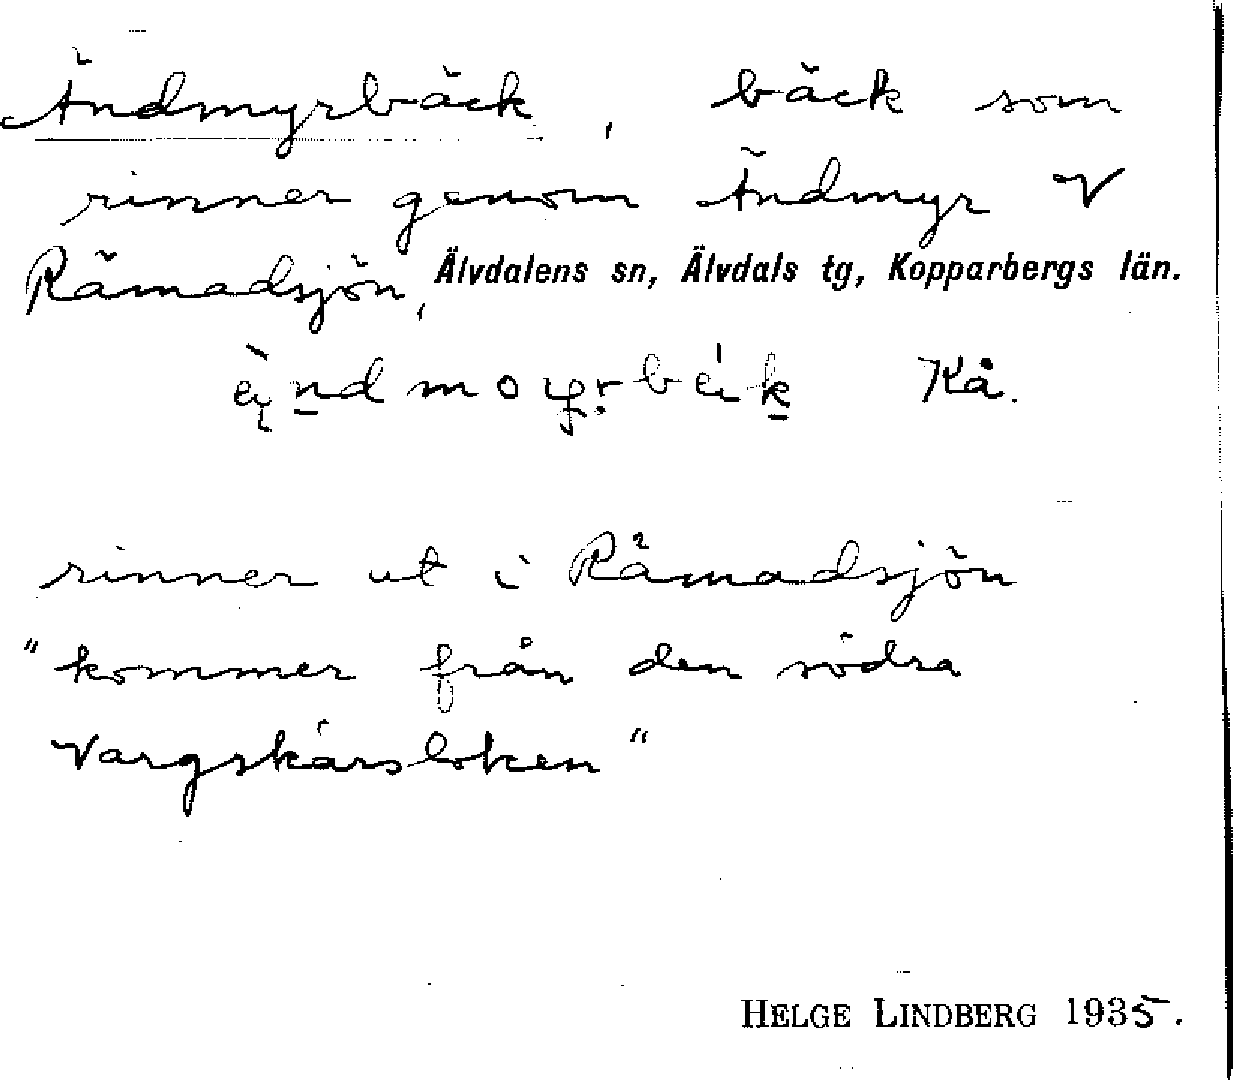 Ändmyrbäck, bäck som
rinner genom Ändmyr V
Råmadsjön, Älvdalens sn, Älvdals tg, Kopparbergs län.
Kå.
rinner ut i Råmadsjön
"kommer från den södra
Vargskärsloken"
HELGE LINDBERG 1935.